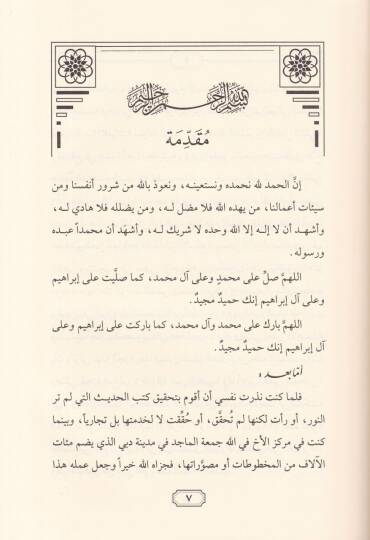 بسم الله الرحمن الرحيم
مُقَدِّمَة
إنَّ الحمد لله نحمده ونستعينه، ونعوذ بالله من شرور أنفسنا ومن
سيئات أعمالنا، من يهده الله فلا مضل له، ومن يضلله فلا هادي له،
وأشهد أن لا إله إلا الله وحده لا شريك له، وأشهَد أن محمداً عبده
ورسوله.
اللهمَّ صلِّ على محمدٍ وعلى آل محمد، كما صلَّيت على إبراهيم
وعلى آل إبراهيم إنك حميدٌ مجيدٌ.
اللهمَّ بارك على محمد وآل محمد، كما باركت على إبراهيم وعلى
آل إبراهيم إنك حميدٌ مجيدٌ.
أمّا بعد
فلما كنت نذرت نفسي أن أقوم بتحقيق كتب الحديث التي لم تر
النور، أو رأت لكنها لم تُحقَّق، أو حُقِّقت لا لخدمتها بل تجارياً، وبينما
كنت في مركز الأخ في الله جمعة الماجد في مدينة دبي الذي يضم مئات
الآلاف من المخطوطات أو مصوَّراتها، فجزاه الله خيراً وجعل عمله هذا
٧